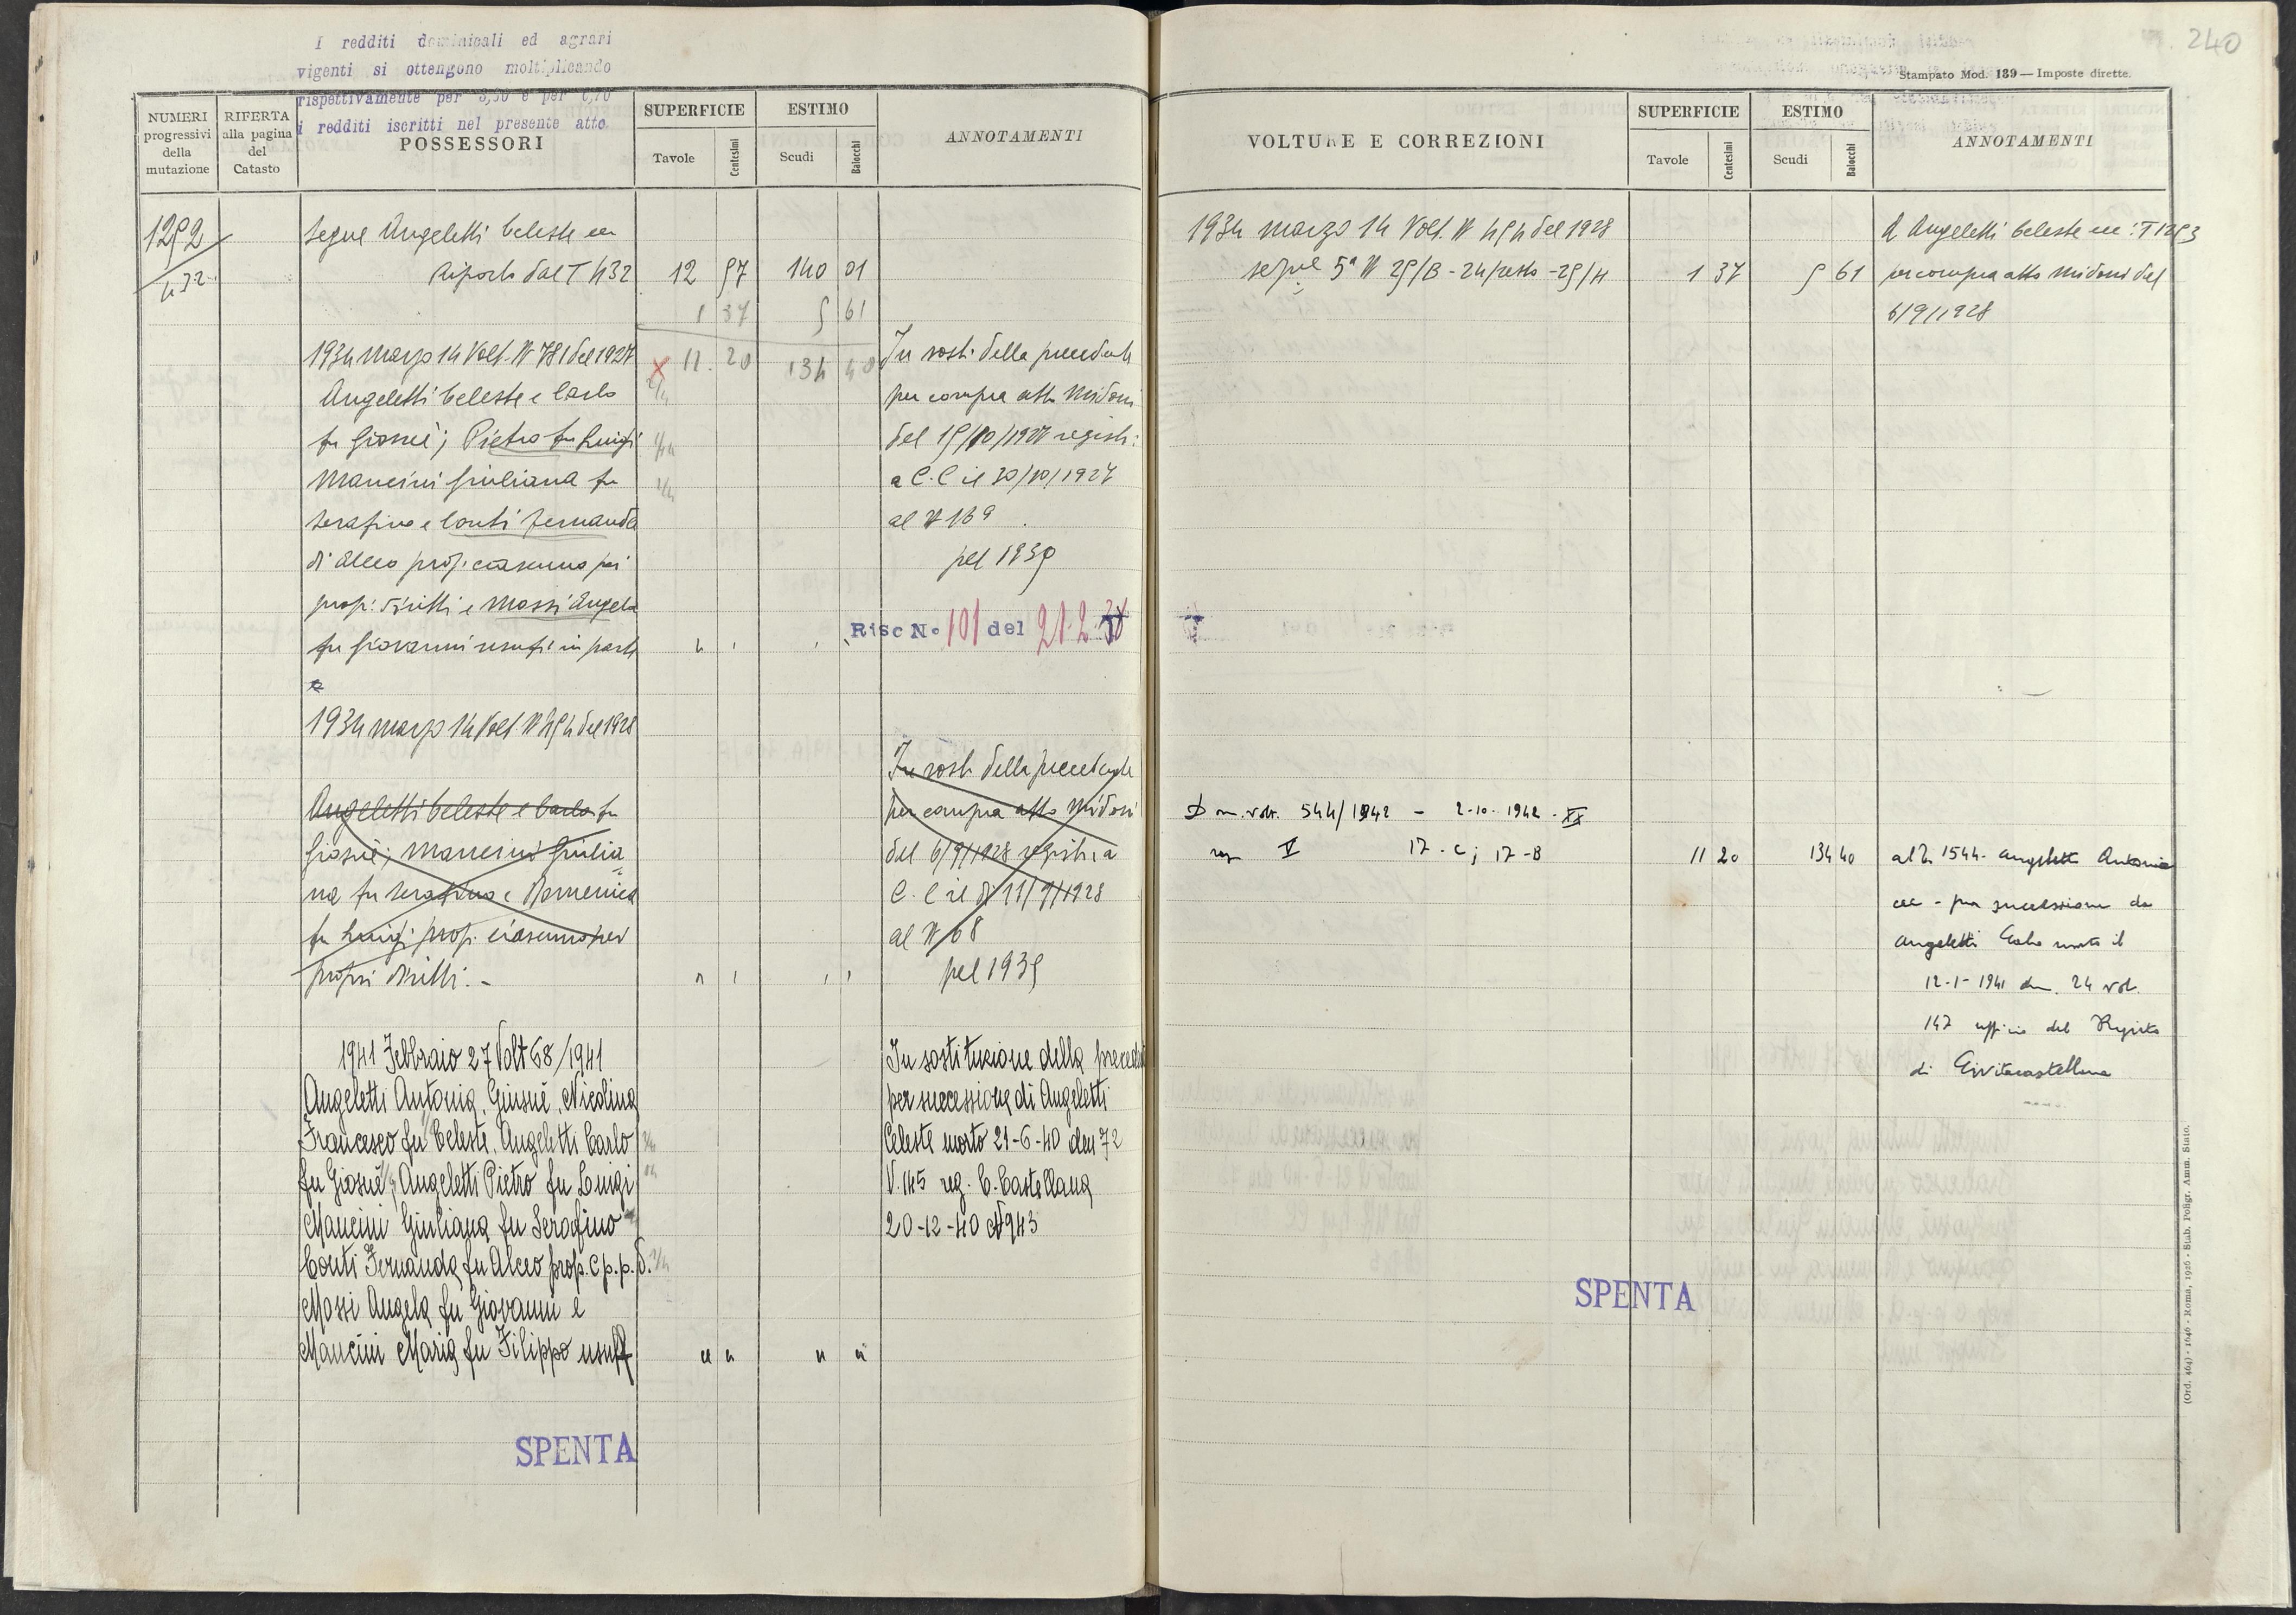 240
Stampato Mod. 139 — Imposte dirette.
I redditi dominicali ed agrari
vigenti si ottengono moltiplicando
rispettivamente per 3,50 e per
i redditi iscritti nel presente atto.
NUMERI
progressivi
della
mutazione
RIFERTA
alla pagina
del
Catasto
POSSESSORI
SUPERFICIE
Tavole
Centesimi
ESTIMO
Scudi
Baiocchi
ANNOTAMENTI
1292
432
Segue Angeletti Celeste ecc
Riporto dal T 432 12 97 140 01
1 37 5 61
11.20 134 40
1934 marzo 14 Volt. N 781 del 1927
Angeletti Celeste e Carlo
fu Giosuè; Pietro fu Luigi
Mancini Giuliana fu
Serafino e Conti Fernanda
di Alceo prop. ciascuno pei
prop: diritti e Mossi Angela
fu Giovanni usuf: in parte
In sost: della precedente
per compra atto Midoni
del 15/10/1927 registr:
a C.C il 30/10/1927
al N 169
pel 1935
Risc No 101 del 21.2.
1934 marzo 14 Volt N 454 del 1928
Angeletti Celeste e Carlo fu
Giosuè; Mancini Giulia
na fu Serafino e Domenica
fu Luigi prop. ciascuno per
propri diritti.-
In sost. della precedente
per compra atto Midoni
del 6/9/1928 registr: a
C.C il dì 11/9/1928
al N 68
pel 1935
1941 Febbraio 27 Volt 68/1941
Angeletti Antonia, Giosuè, Nicolina
Francesco fu Celeste, Angeletti Carlo
fu Giosuè, Angeletti Pietro fu Luigi
Mancini Giuliana fu Serafino
Conti Fernanda fu Alceo prop. c p. p. d.
Mossi Angela fu Giovanni e
Mancini Maria fu Filippo usuff
In sostituzione della precedente
per successione di Angeletti
Celeste morto 21-6-40 den 72
V. 145 reg. C. Castellana
20-12-40 N 943
SPENTA
VOLTURE E CORREZIONI
SUPERFICIE
Tavole
Centesimi
ESTIMO
Scudi
Baiocchi
ANNOTAMENTI
1934 marzo 14 Volt. N 454 del 1928
sez. 5ª N 25/B - 24/resto - 25/H 1 37 5 61
A Angeletti Celeste ecc: T 1293
per compra atto Midoni del
6/9/1928
Dom. volt. 544/1942 - 2-10-1942.XX
sez V 17-C; 17-B 11 20 134 40
al T. 1544. Angeletti Antonia
ecc - per successione da
Angeletti Carlo morto il
12-1-1941 den. 24 vol.
147 ufficio del Registro
di Civitacastellana
SPENTA
(Ord. 464) - 1646 - Roma, 1926 - Stab. Poligr. Amm. Stato.